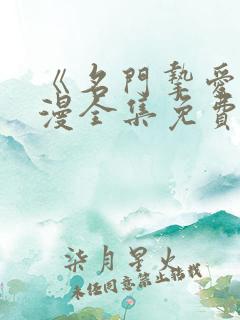 《名門摯愛
漫全集免費
柒月星火
未经同意禁止转载